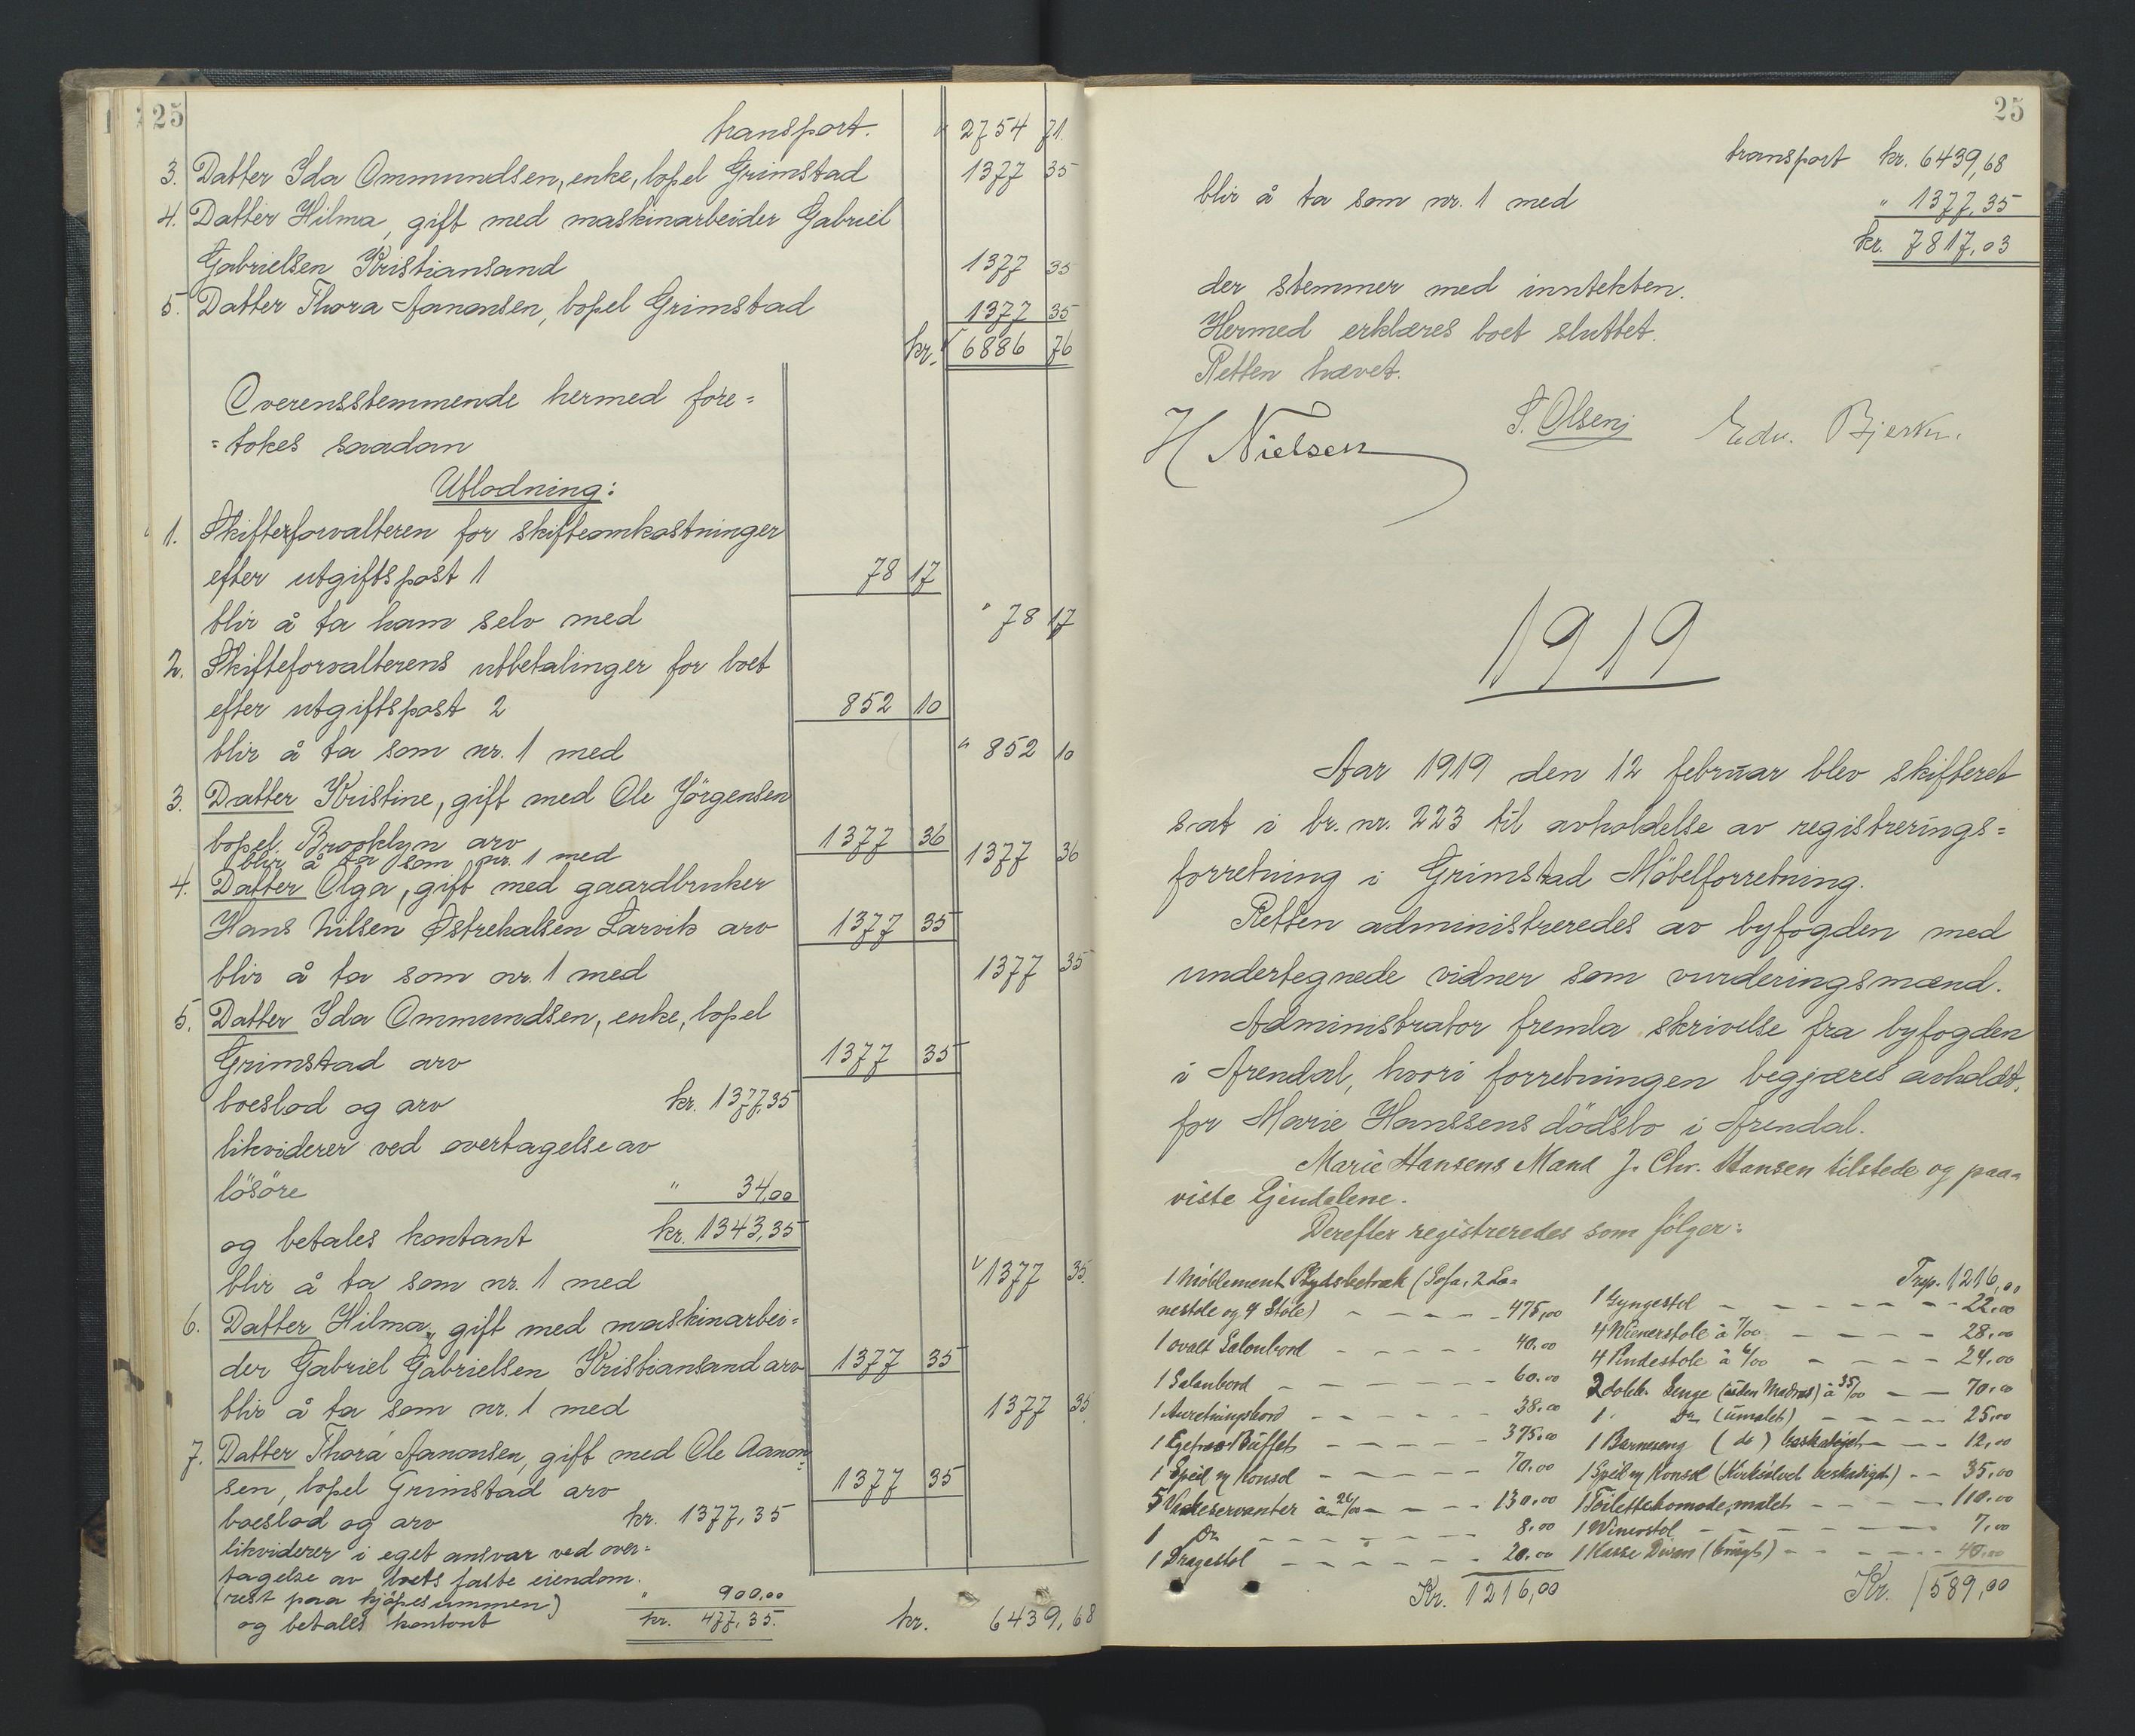 25
transport. " 2754 71.
3. Datter Ida Ommundsen, enke, bopel Grimstad 1377 35
4. Datter Hilma, gift med maskinarbeider Gabriel
Gabrielsen Kristiansand 1377 35
5. Datter Thora Aanonsen, bopel Grimstad 1377 35
kr. 6886 76
Overensstemmende hermed fore=
=tokes saadan
Utlodning:
1. Skifterforvalteren for skifteomkostninger
efter utgiftspost 1 78 17
blir å ta ham selv med " 78 17
2. Skifteforvalterens utbetalinger for boet
efter utgiftspost 2 852 10
blir å ta som nr. 1 med " 852 10
3. Datter Kristine, gift med Ole Jörgensen
bopel Brooklyn arv 1377 36
blir å ta som nr. 1 med 1377 36
4. Datter Olga, gift med gaardbruker
Hans Nilsen Østrehalsen Larvik arv 1377 35
blir å ta som nr. 1 med 1377 35
5. Datter Ida Ommundsen, enke, bopel
Grimstad arv 1377 35
boeslod og arv kr. 1377,35
likviderer ved overtagelse av
lösöre " 34,00
og betales kontant kr. 1343,35
blir å ta som nr. 1 med 1377 35.
6. Datter Hilma, gift med maskinarbei=
der Gabriel Gabrielsen Kristiansand arv 1377 35
blir å ta som nr. 1 med 1377 35
7. Datter Thora Aanonsen, gift med Ole Aanon=
sen, bopel Grimstad arv 1377 35
boeslod og arv kr. 1377,35
likviderer i eget ansvar ved over=
tagelse av boets faste eiendom.
(rest paa kjöpesummen) " 900,00
og betales kontant kr. 477,35.
kr. 6439,68
25
transport kr. 6439,68
blir å ta som nr. 1 med " 1377,35
kr. 7817,03
der stemmer med inntekten.
Hermed erklæres boet sluttet.
Retten hævet.
H Nielsen S. Olsen Edv. Bjerkn.
1919
Aar 1919 den 12 februar blev skifteret
sat i br. nr. 223 til avholdelse av registrerings=
forretning i Grimstad Möbelforretning.
Retten administreredes av byfogden med
undertegnede vidner som vurderingsmænd.
Administrator fremla skrivelse fra byfogden
i Arendal, hvori forretningen begjæres avholdt,
for Marie Hanssens dödsbo i Arendal.
Marie Hansens Mand J. Chr. Hansen tilstede og paa=
viste Ejendelene.
Derefter registreredes som følger:
1 Möblement Plydsbetræk (Sofa, 2 Læ=
nestole og 4 Stole) 475,00
1 ovalt Salonbord 40,00
1 Salonbord 60,00
1 Anretningsbord 38,00
1 Egetræs Büffet 375,00
1 Speil m/ Konsol 70,00
5 Vaskeservanter à 26/00 130,00
1 Do 8,00
1 Dragestol 20,00
Kr. 1216,00
Trsp. 1216,00
1 Gyngestol 22,00
4 Wienerstole à 7/00 28,00
4 Pindestole à 6/00 24,00
2 dobb. Senge (uden Madras) à 35/00 70,00
1 Do (umalet) 25,00
1 Barneseng (do) beskadiget 12,00
1 Speil m/ Konsol beskadiget) 35,00
1 Toilettekomode, malet 110,00
1 Wienerstol 7,00
1 Kasse Divan (brugt) 40,00
Kr. 1589,00